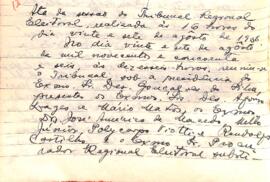 Ata da sessão do Tribunal Regional
Eleitoral, realizada às 16 horas do
dia vinte e sete de agosto de 1956.
No dia vinte e sete de agosto
de mil novecentos e cincoenta
e seis, às dezesseis horas, reuniu-se
o Tribunal sob a presidência do
Exmo. Sr. Des. Gonçalves da Silva,
presentes os Exmos. Srs. Des. Afonso
Lages e Mário Matos, os Exmos.
Srs. José Américo de Macedo,
Júnior, Polycarpo Viotti e Randolfo
e o Exmo. Sr. Procu-
rador Regional Eleitoral substi